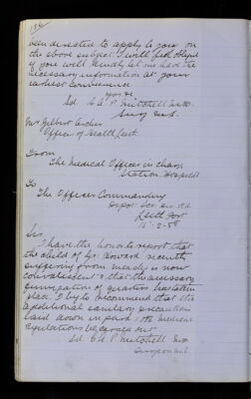 been directed to apply to you on
the above subject I will feel obliged
if you will kindly let me have the
necessary information at your
earliest convenience
Sd. C. A. P. Mitchell M.D.
Surg M.S.
Mr Gilbert Archer
Officer of Health Leith
From
The Medical Officer in charge
Station Hospital
To
The Officer Commanding
Depot
Leith Fort
Sir
I have the honor to report that
the child of Howard recently
suffering from measles is now
convalescent & that the necessary
fumigation of quarters has taken
place. I beg to recommend that the
additional sanitary precautions
laid down in para Medical
Regulations be carried out
Sd C A P Mitchell M.D.
Surgeon M.S.